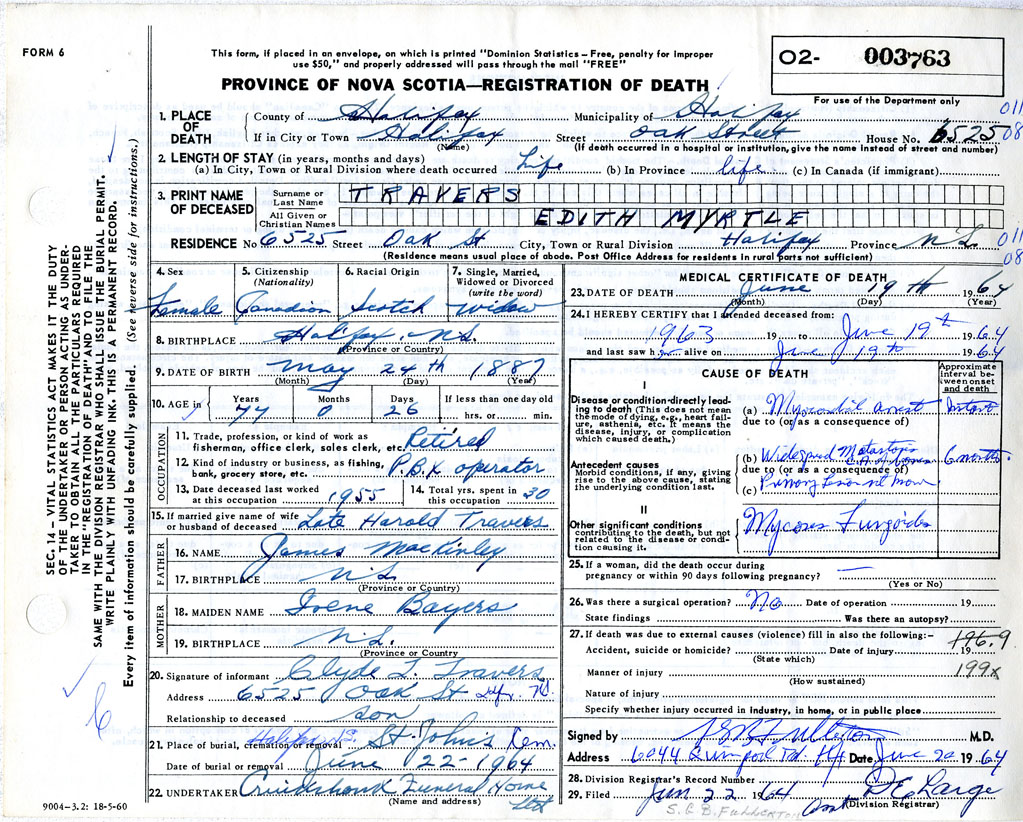 FORM 6
This form, if placed in an envelope, on which is printed "Dominion Statistics – Free, penalty for improper
use $50," and properly addressed will pass through the mail "FREE"
O2- 003763
For use of the Department only
PROVINCE OF NOVA SCOTIA—REGISTRATION OF DEATH
1. PLACE OF DEATH
County of Halifax Municipality of Halifax 011
If in City or Town Halifax Street Oak Street House No. 6525 08
(Name) (If death occurred in a hospital or institution, give the name instead of street and number)
2. LENGTH OF STAY (in years, months and days)
(a) In City, Town or Rural Division where death occurred Life (b) In Province life (c) In Canada (if immigrant)
3. PRINT NAME OF DECEASED
Surname or Last Name TRAVERS
All Given or Christian Names EDITH MYRTLE
RESIDENCE No 6525 Street Oak St City, Town or Rural Division Halifax Province N.S. 011
(Residence means usual place of abode. Post Office Address for residents in rural parts not sufficient) 08
4. Sex Female
5. Citizenship (Nationality) Canadian
6. Racial Origin Scotch
7. Single, Married, Widowed or Divorced (write the word) Widow
8. BIRTHPLACE Halifax, N.S.
(Province or Country)
9. DATE OF BIRTH May 24th 1887
(Month) (Day) (Year)
10. AGE in Years 77 Months 0 Days 26 If less than one day old hrs. or min.
OCCUPATION
11. Trade, profession, or kind of work as fisherman, office clerk, sales clerk, etc. Retired
12. Kind of industry or business, as fishing, bank, grocery store, etc. P.B.X operator
13. Date deceased last worked at this occupation 1955
14. Total yrs. spent in this occupation 30
15. If married give name of wife or husband of deceased Late Harold Travers
FATHER
16. NAME James MacKinley
17. BIRTHPLACE N.S.
(Province or Country)
MOTHER
18. MAIDEN NAME Irene Bayers
19. BIRTHPLACE N.S.
(Province or Country)
20. Signature of informant Clyde L. Travers
Address 6525 Oak St Hfx N.S.
Relationship to deceased son
21. Place of burial, cremation or removal Halifax N.S. St. John's Cem.
Date of burial or removal June 22-1964
22. UNDERTAKER Cruikshank Funeral Home Ltd
(Name and address)
MEDICAL CERTIFICATE OF DEATH
23. DATE OF DEATH June 19th 1964
(Month) (Day) (Year)
24. I HEREBY CERTIFY that I attended deceased from:
1963 19 to June 19th 1964
and last saw her alive on June 19th 1964
CAUSE OF DEATH
Approximate interval between onset and death
I
Disease or condition directly leading to death (This does not mean the mode of dying, e.g., heart failure, asthenia, etc. It means the disease, injury, or complication which caused death.)
(a) Myocardial arrest Instant
due to (or as a consequence of)
Antecedent causes
Morbid conditions, if any, giving rise to the above cause, stating the underlying condition last.
(b) Widespread Metastasis 6 months
due to (or as a consequence of)
(c) Primary
II
Other significant conditions contributing to the death, but not related to the disease or condition causing it.
Mycoses Fungoides
25. If a woman, did the death occur during pregnancy or within 90 days following pregnancy? —
(Yes or No)
26. Was there a surgical operation? No Date of operation 19
State findings Was there an autopsy?
27. If death was due to external causes (violence) fill in also the following:– 196.9
Accident, suicide or homicide? Date of injury 19
(State which)
Manner of injury 199x
(How sustained)
Nature of injury
Specify whether injury occurred in industry, in home, or in public place
Signed by M.D.
Address 6044 Quinpool Rd. Hfx Date June 20 1964
28. Division Registrar's Record Number
29. Filed Jun 22 1964 D E Large
(Division Registrar)
S.E.B. FULLERTON
SEC. 14 – VITAL STATISTICS ACT MAKES IT THE DUTY
OF THE UNDERTAKER OR PERSON ACTING AS UNDER-
TAKER TO OBTAIN ALL THE PARTICULARS REQUIRED
IN THE "REGISTRATION OF DEATH" AND TO FILE THE
SAME WITH THE DIVISION REGISTRAR WHO SHALL ISSUE THE BURIAL PERMIT.
WRITE PLAINLY WITH UNFADING INK. THIS IS A PERMANENT RECORD.
Every item of information should be carefully supplied. (See reverse side for instructions.)
9004-3.2: 18-5-60